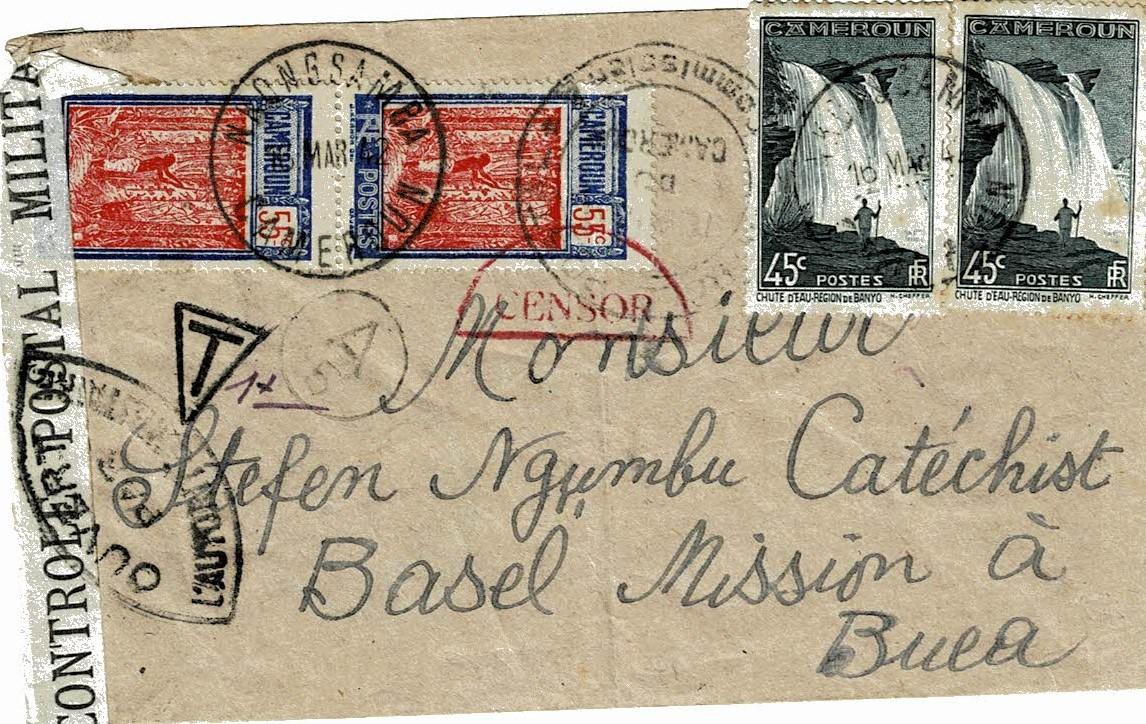 CONTROLE POSTAL MILITA
CAMEROUN
55c
RF POSTES
CAMEROUN
55c
NKONGSAMBA
MAR 42
CAMEROUN
45c POSTES RF
CHUTE D'EAU-RÉGION DE BANYO H. CHEFFER
CAMEROUN
45c POSTES RF
CHUTE D'EAU-RÉGION DE BANYO H. CHEFFER
16 MAR
CENSOR
T
OUVERT
PAR
L'AUTORITÉ
Monsieur
Stefen Ngumbu Catéchist
Basel Mission à
Buea